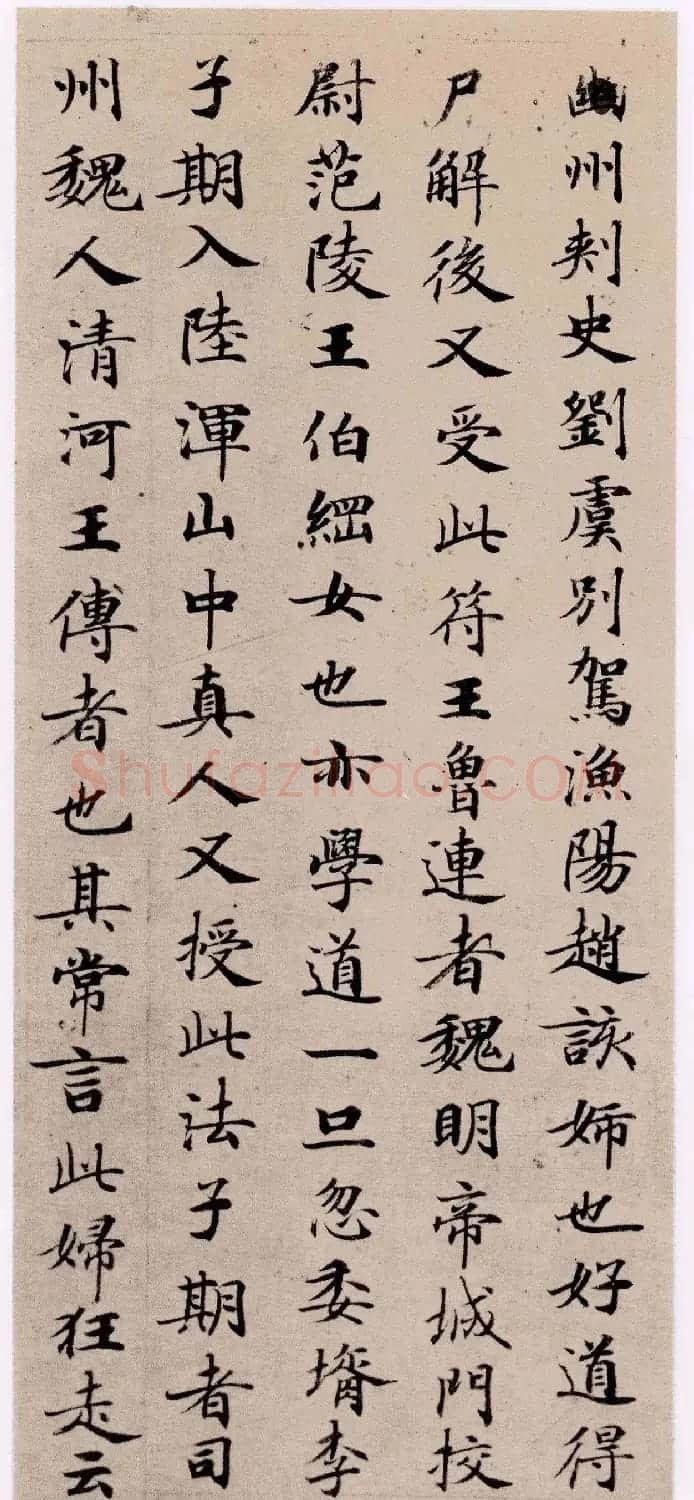 幽州刾史劉虞別駕漁陽趙該姉也好道得
尸解後又受此符王魯連者魏明帝城門挍
尉范陵王伯綱女也亦學道一旦忽委壻李
子期入陸渾山中真人又授此法子期者司
州魏人清河王傅者也其常言此婦狂走云
Shufaziliao.COM